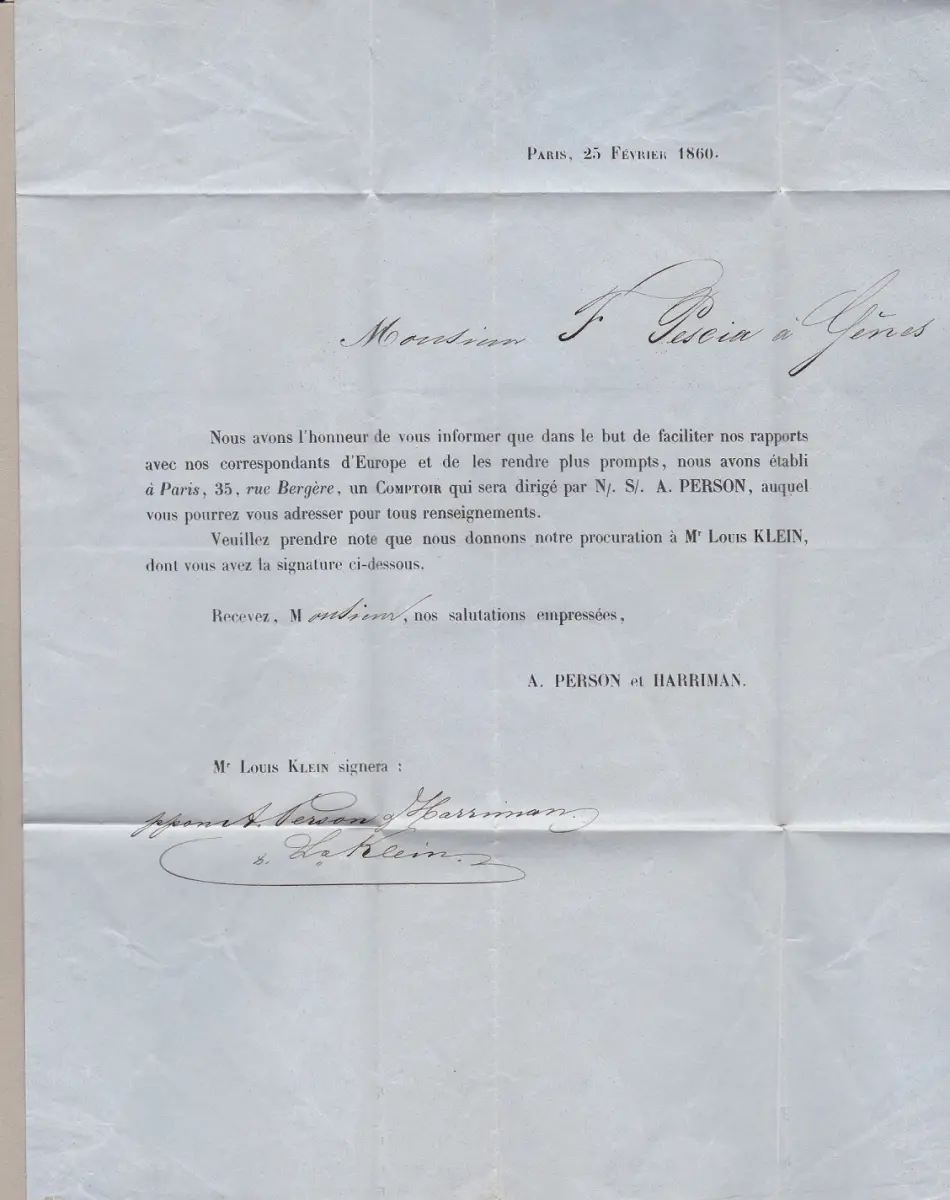 Paris, 25 Février 1860.
Monsieur F Pescia à Gênes
Nous avons l'honneur de vous informer que dans le but de faciliter nos rapports
avec nos correspondants d'Europe et de les rendre plus prompts, nous avons établi
à Paris, 35, rue Bergère, un Comptoir qui sera dirigé par N/. S/. A. PERSON, auquel
vous pourrez vous adresser pour tous renseignements.
Veuillez prendre note que nous donnons notre procuration à Mr Louis KLEIN,
dont vous avez la signature ci-dessous.
Recevez, Monsieur, nos salutations empressées,
A. PERSON et HARRIMAN.
Mr Louis Klein signera :
A. Person & Harriman.
Ls Klein.